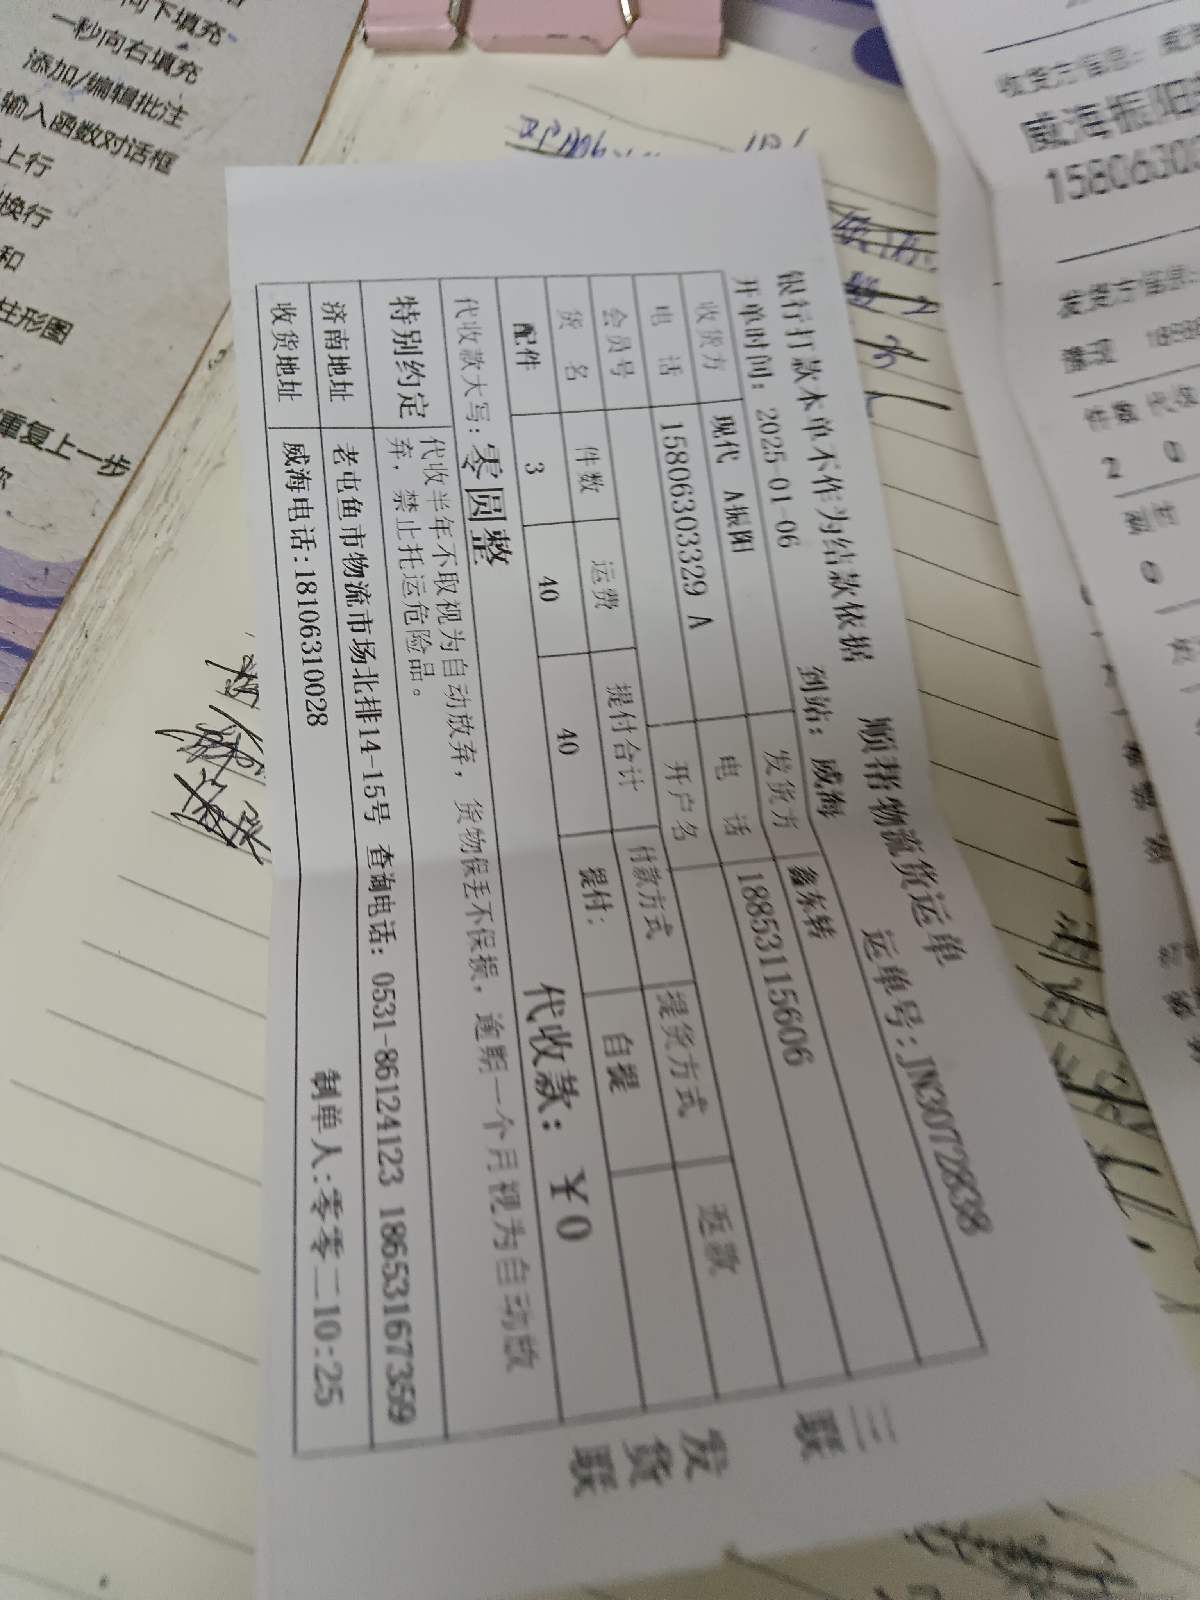 顺帮物流货运单
银行打款本单不作为结款依据
运单号:JN3072838
开单时间: 2025-01-06
到站: 威海
收货方 现代 A振阳 发货方 鑫东转
电 话 15806303329 A 电 话 18853115606
会员号 开户名
货 名 件数 运费 提付合计 付款方式 提货方式 返款
配件 3 40 40 提付: 自提
代收款大写: 零圆整 代收款: ￥0
特别约定 代收半年不取视为自动放弃, 货物保丢不保损, 逾期一个月视为自动放
弃, 禁止托运危险品。
济南地址 老屯鱼市物流市场北排14-15号 查询电话: 0531-86124123 18653167359
收货地址 威海电话:18106310028 制单人:零零二10:25
三联
发货联
向下填充
一秒向右填充
添加/编辑批注
输入函数对话框
上行
换行
和
柱形图
重复上一步
收货方信息:
威海振阳
1580630
发货方信息:
豫现
件数 代收
2 0